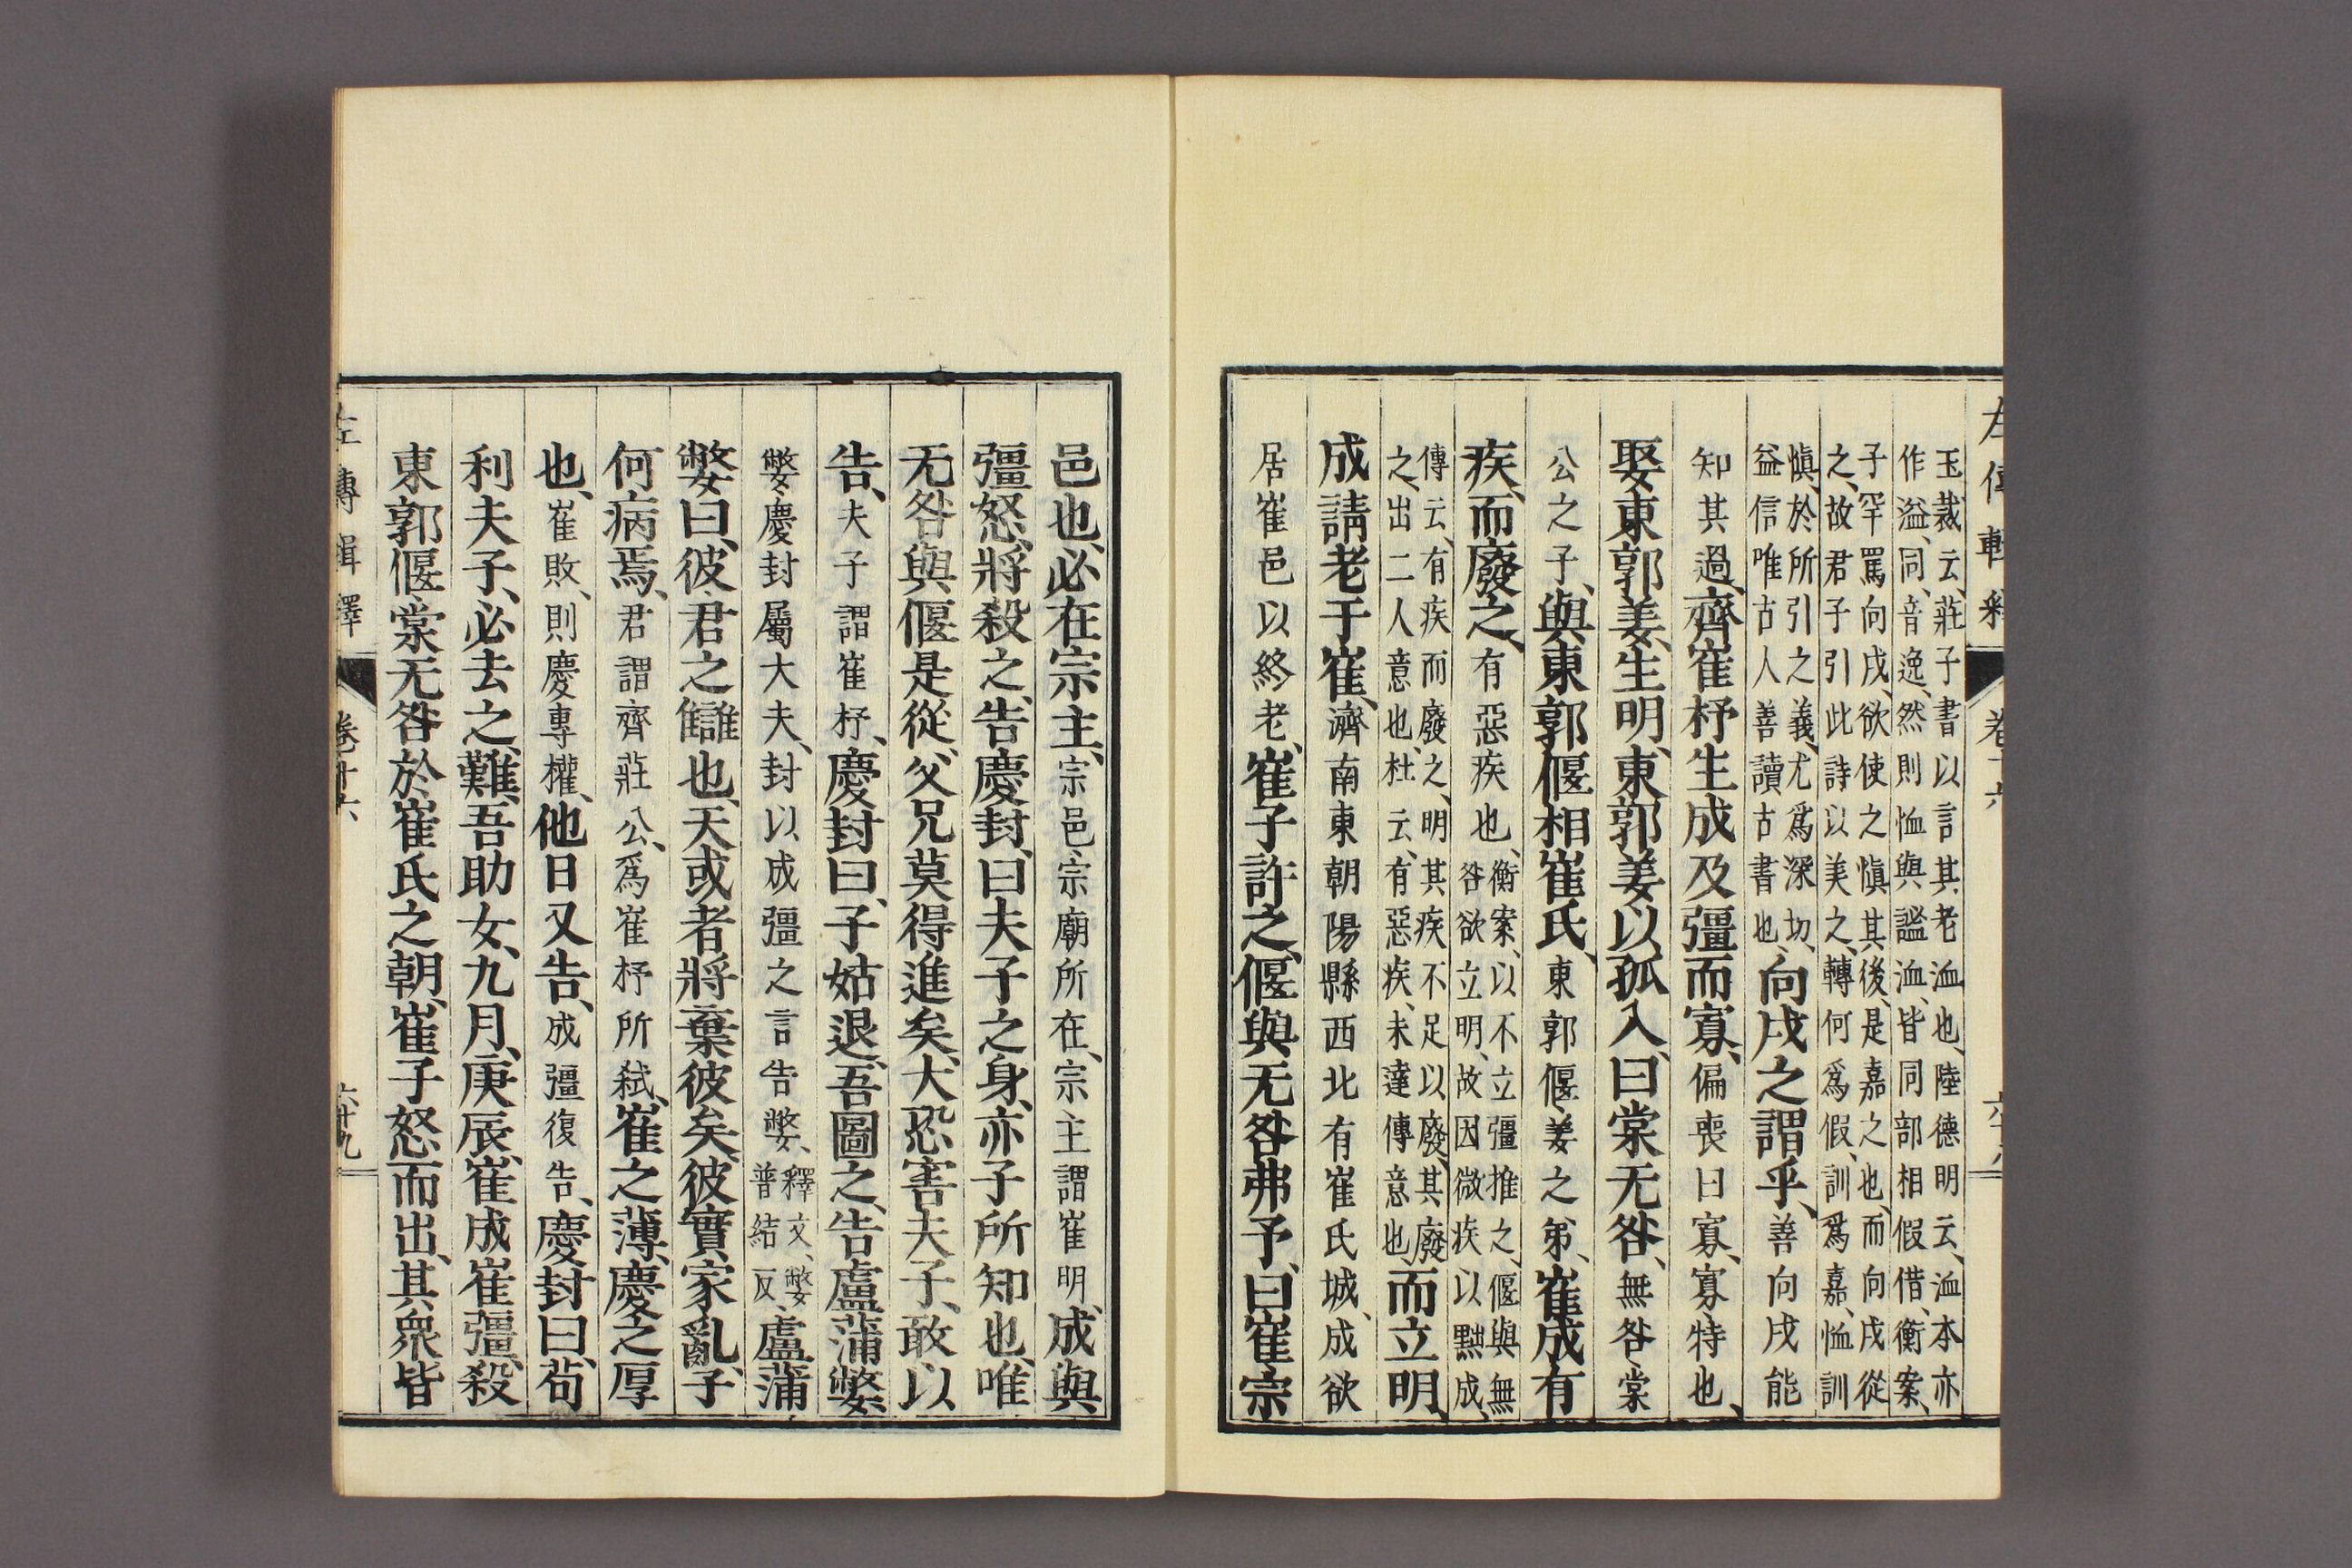 左傳輯釋 卷十六 六十八
玉裁云、莊子書以言其老洫也、陸德明云、洫本亦
作溢、同、音逸、然則恤與謐洫、皆同部相假借、衡案、
子罕罵向戌、欲使之愼其後、是嘉之也、而向戌從
之、故君子引此詩以美之、轉何爲假、訓爲嘉、恤訓
愼、於所引之義、尤爲深切、
益信唯古人善讀古書也、向戌之謂乎、善向戌能
知其過、齊崔杼生成及彊而寡、偏喪曰寡、寡、特也、
娶東郭姜、生明、東郭姜以孤入、曰棠无咎、無咎、棠
公之子、與東郭偃相崔氏、東郭偃、姜之弟、崔成有
疾、而廢之、有惡疾也、衡案、以不立彊推之、偃與無
咎欲立明、故因微疾、以黜成、
傳云、有疾而廢之、明其疾不足以廢、其廢
之、出二人意也、杜云、有惡疾、未達傳意也、而立明、
成請老于崔、濟南東朝陽縣西北有崔氏城、成欲
居崔邑以終老、崔子許之、偃與无咎弗予、曰、崔宗
邑也、必在宗主、宗邑宗廟所在、宗主謂崔明、成與
彊怒、將殺之、告慶封、曰、夫子之身、亦子所知也、唯
无咎與偃是從、父兄莫得進矣、大恐害夫子、敢以
告、夫子謂崔杼、慶封曰、子姑退、吾圖之、告盧蒲嫳、
嫳、慶封屬大夫、封以成彊之言告嫳、釋文、嫳普結反、盧蒲
嫳曰、彼君之讎也、天或者將棄彼矣、彼實家亂、子
何病焉、君謂齊莊公、爲崔杼所弒、崔之薄、慶之厚
也、崔敗、則慶專權、他日又告、成彊復告、慶封曰、苟
利夫子、必去之、難、吾助女、九月、庚辰、崔成崔彊、殺
東郭偃棠无咎於崔氏之朝、崔子怒而出、其衆皆
左傳輯釋 卷十六 六十九